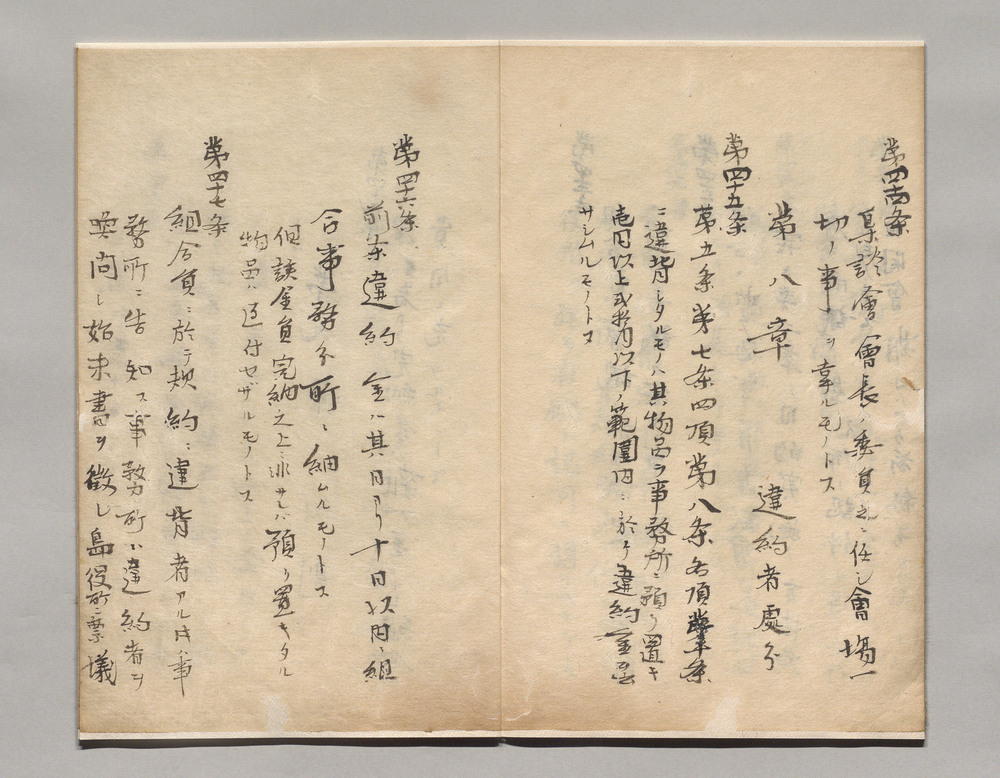 第四十四条
集談會會長ノ委員之ニ任シ會場一
切ノ事ヲ章ルモノトス
第八章 違約者處分
第四十五条
第五条第七条四項第八条各項第十条
ニ違背シタルモノハ其物品ヲ事務所ニ預リ置キ
壱円以上弐拾円以下ノ範圍内ニ於テ違約金ヲ出
サシムルモノトス
第四十六条
前条違約金ハ其月日ヨリ十日以内ニ組
合事務分所ニ納ムルモノトス
但該金員完納之上ニ非サレハ預リ置キタル
物品ハ返付セザルモノトス
第四十七条
組合員ニ於テ規約ニ違背者アル片ハ事
務所ニ告知ス事務所ハ違約者ヲ
喚問シ始末書ヲ徴シ島役所ニ禀議